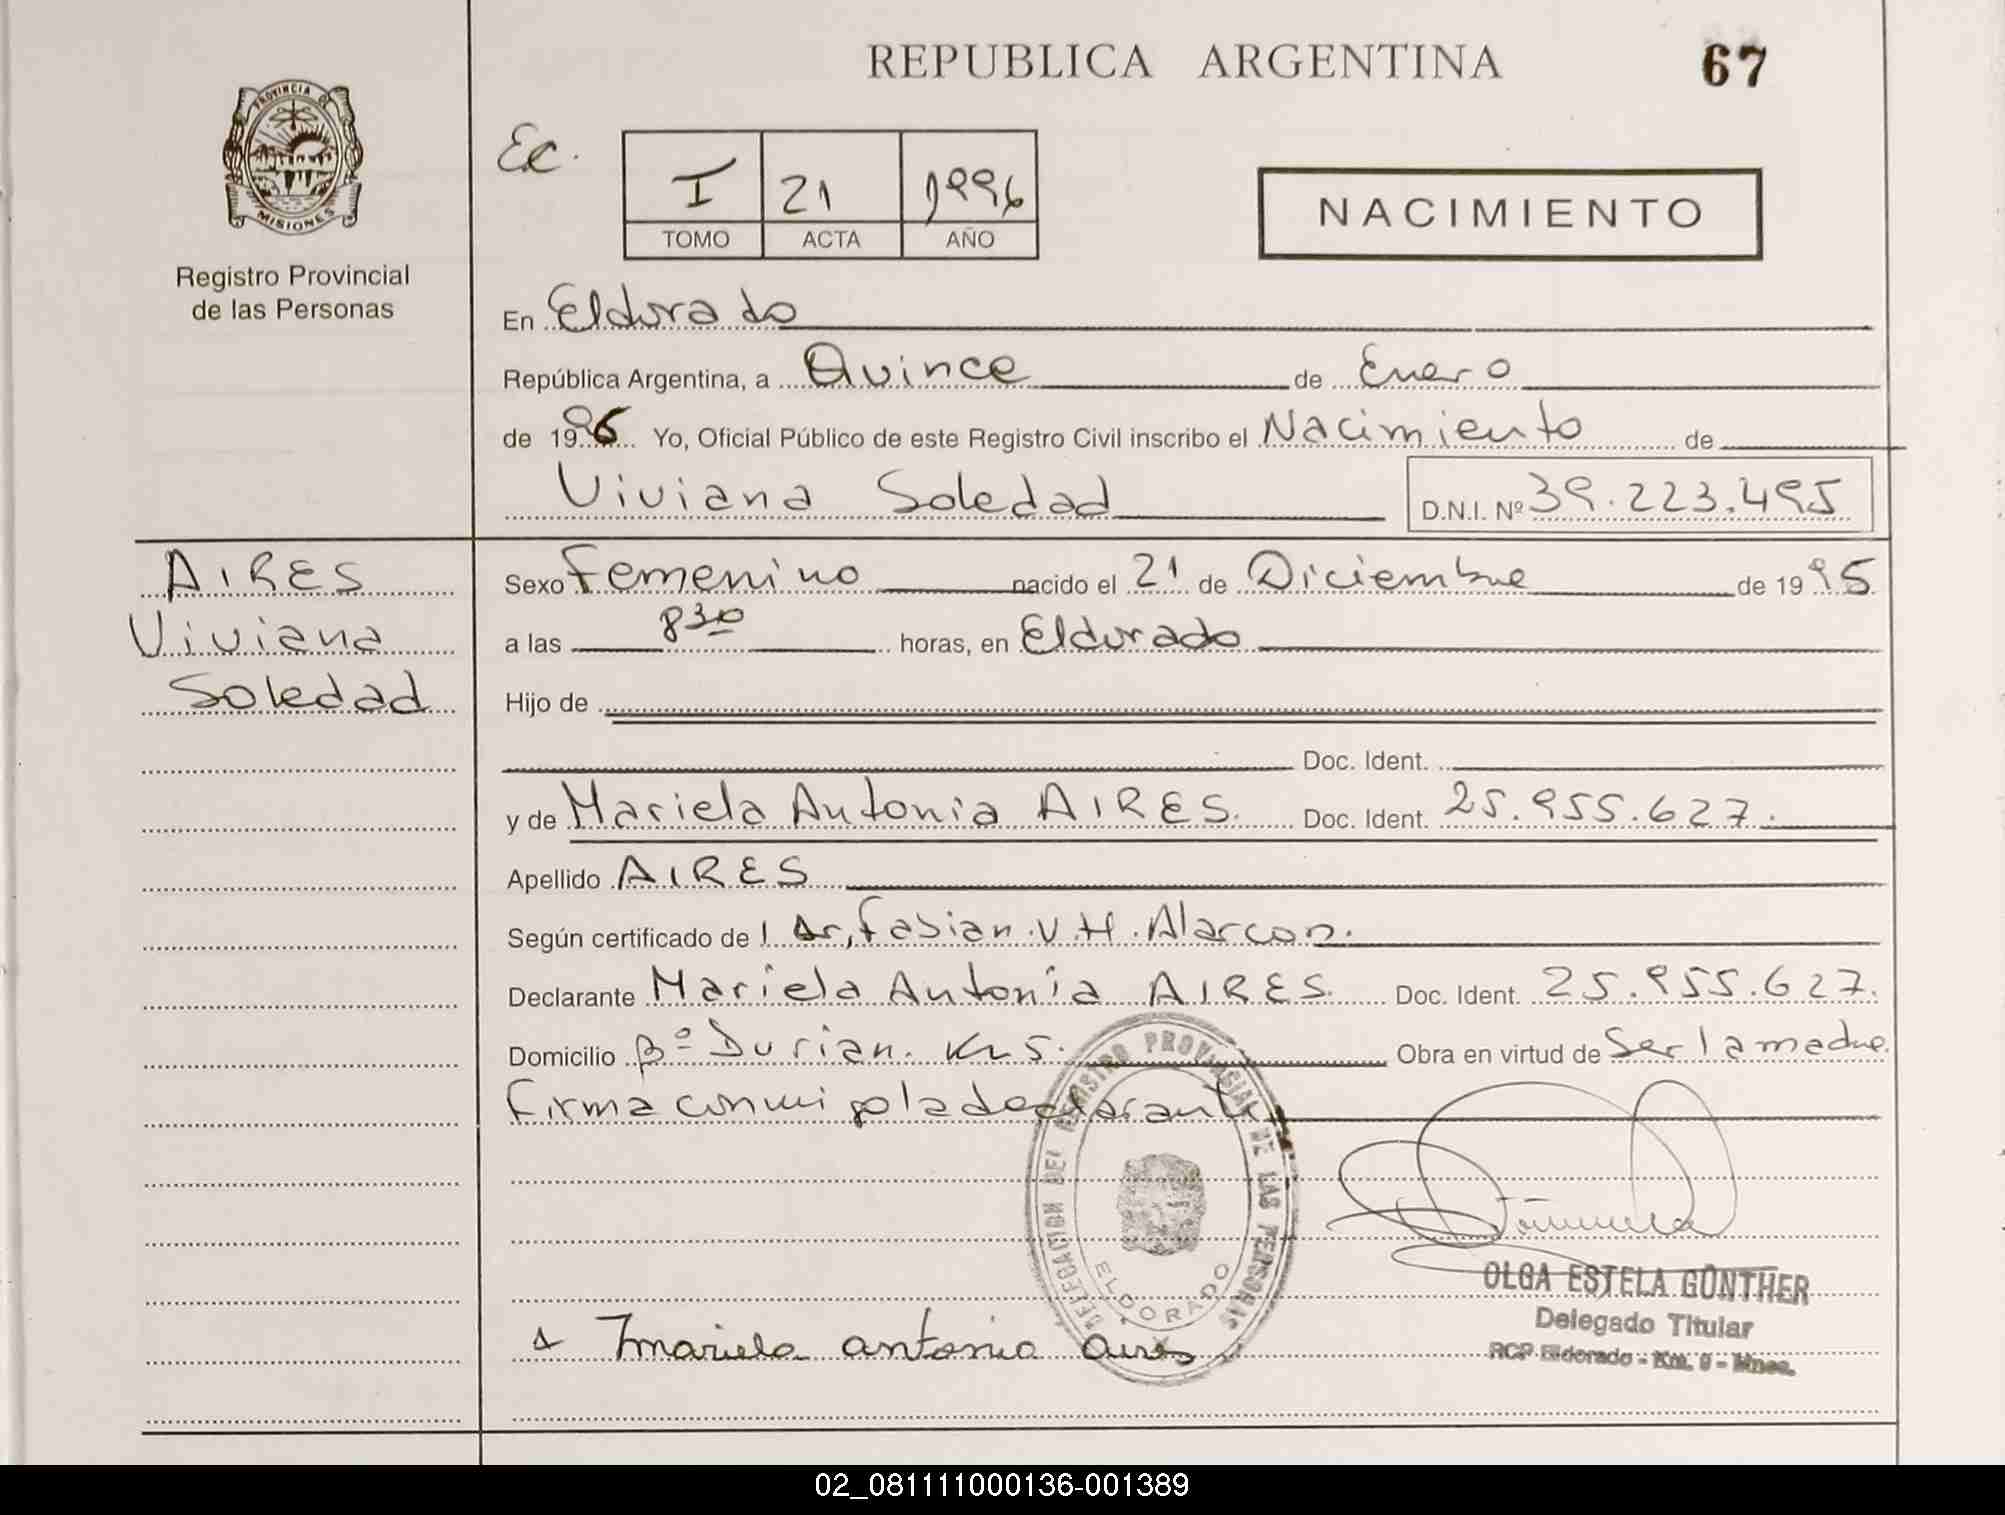 REPUBLICA ARGENTINA
67
PROVINCIA DE MISIONES
Registro Provincial
de las Personas
Ec.
I 21 1996
TOMO ACTA AÑO
NACIMIENTO
En Eldorado
República Argentina, a Quince de Enero
de 1996 Yo, Oficial Público de este Registro Civil inscribo el Nacimiento de
Viviana Soledad D.N.I. Nº 39.223.495
AIRES
Viviana
Soledad
Sexo Femenino nacido el 21 de Diciembre de 1995
a las 8 30 horas, en Eldorado
Hijo de
Doc. Ident.
y de Mariela Antonia AIRES. Doc. Ident. 25.955.627.
Apellido AIRES
Según certificado de l Dr, Fabian V. H. Alarcon.
Declarante Mariela Antonia AIRES. Doc. Ident. 25.955.627.
Domicilio Bº Durian. Km 5. Obra en virtud de Ser la madre.
Firma conmigo la declarante
DELEGACION DEL REGISTRO PROVINCIAL DE LAS PERSONAS
ELDORADO
OLGA ESTELA GÜNTHER
Delegado Titular
RCP Eldorado - Km. 9 - Mnes.
Mariela antonia aires
02_081111000136-001389